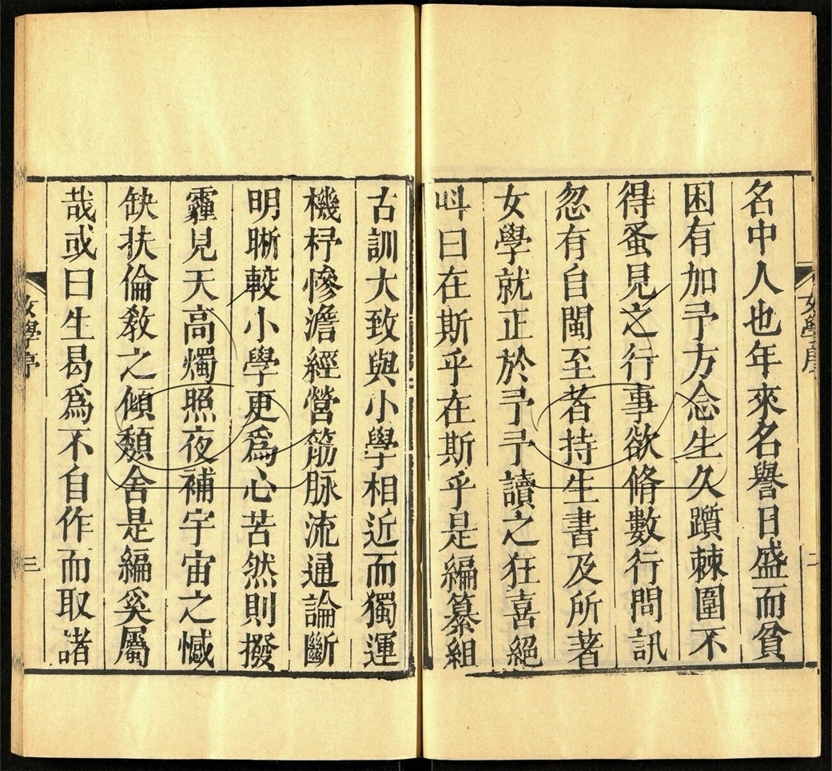 名中人也年來名譽日盛而貧
困有加予方念生久躓棘圍不
得蚤見之行事欲脩數行問訊
忽有自閩至者持生書及所著
女學就正於予予讀之狂喜絕
叫曰在斯乎在斯乎是編纂組
古訓大致與小學相近而獨運
機杼慘澹經營筋脉流通論斷
明晰較小學更爲心苦然則撥
霾見天高燭照夜補宇宙之憾
缺扶倫敎之傾頽舍是編奚屬
哉或曰生曷爲不自作而取諸
女學序
二
女學序
三